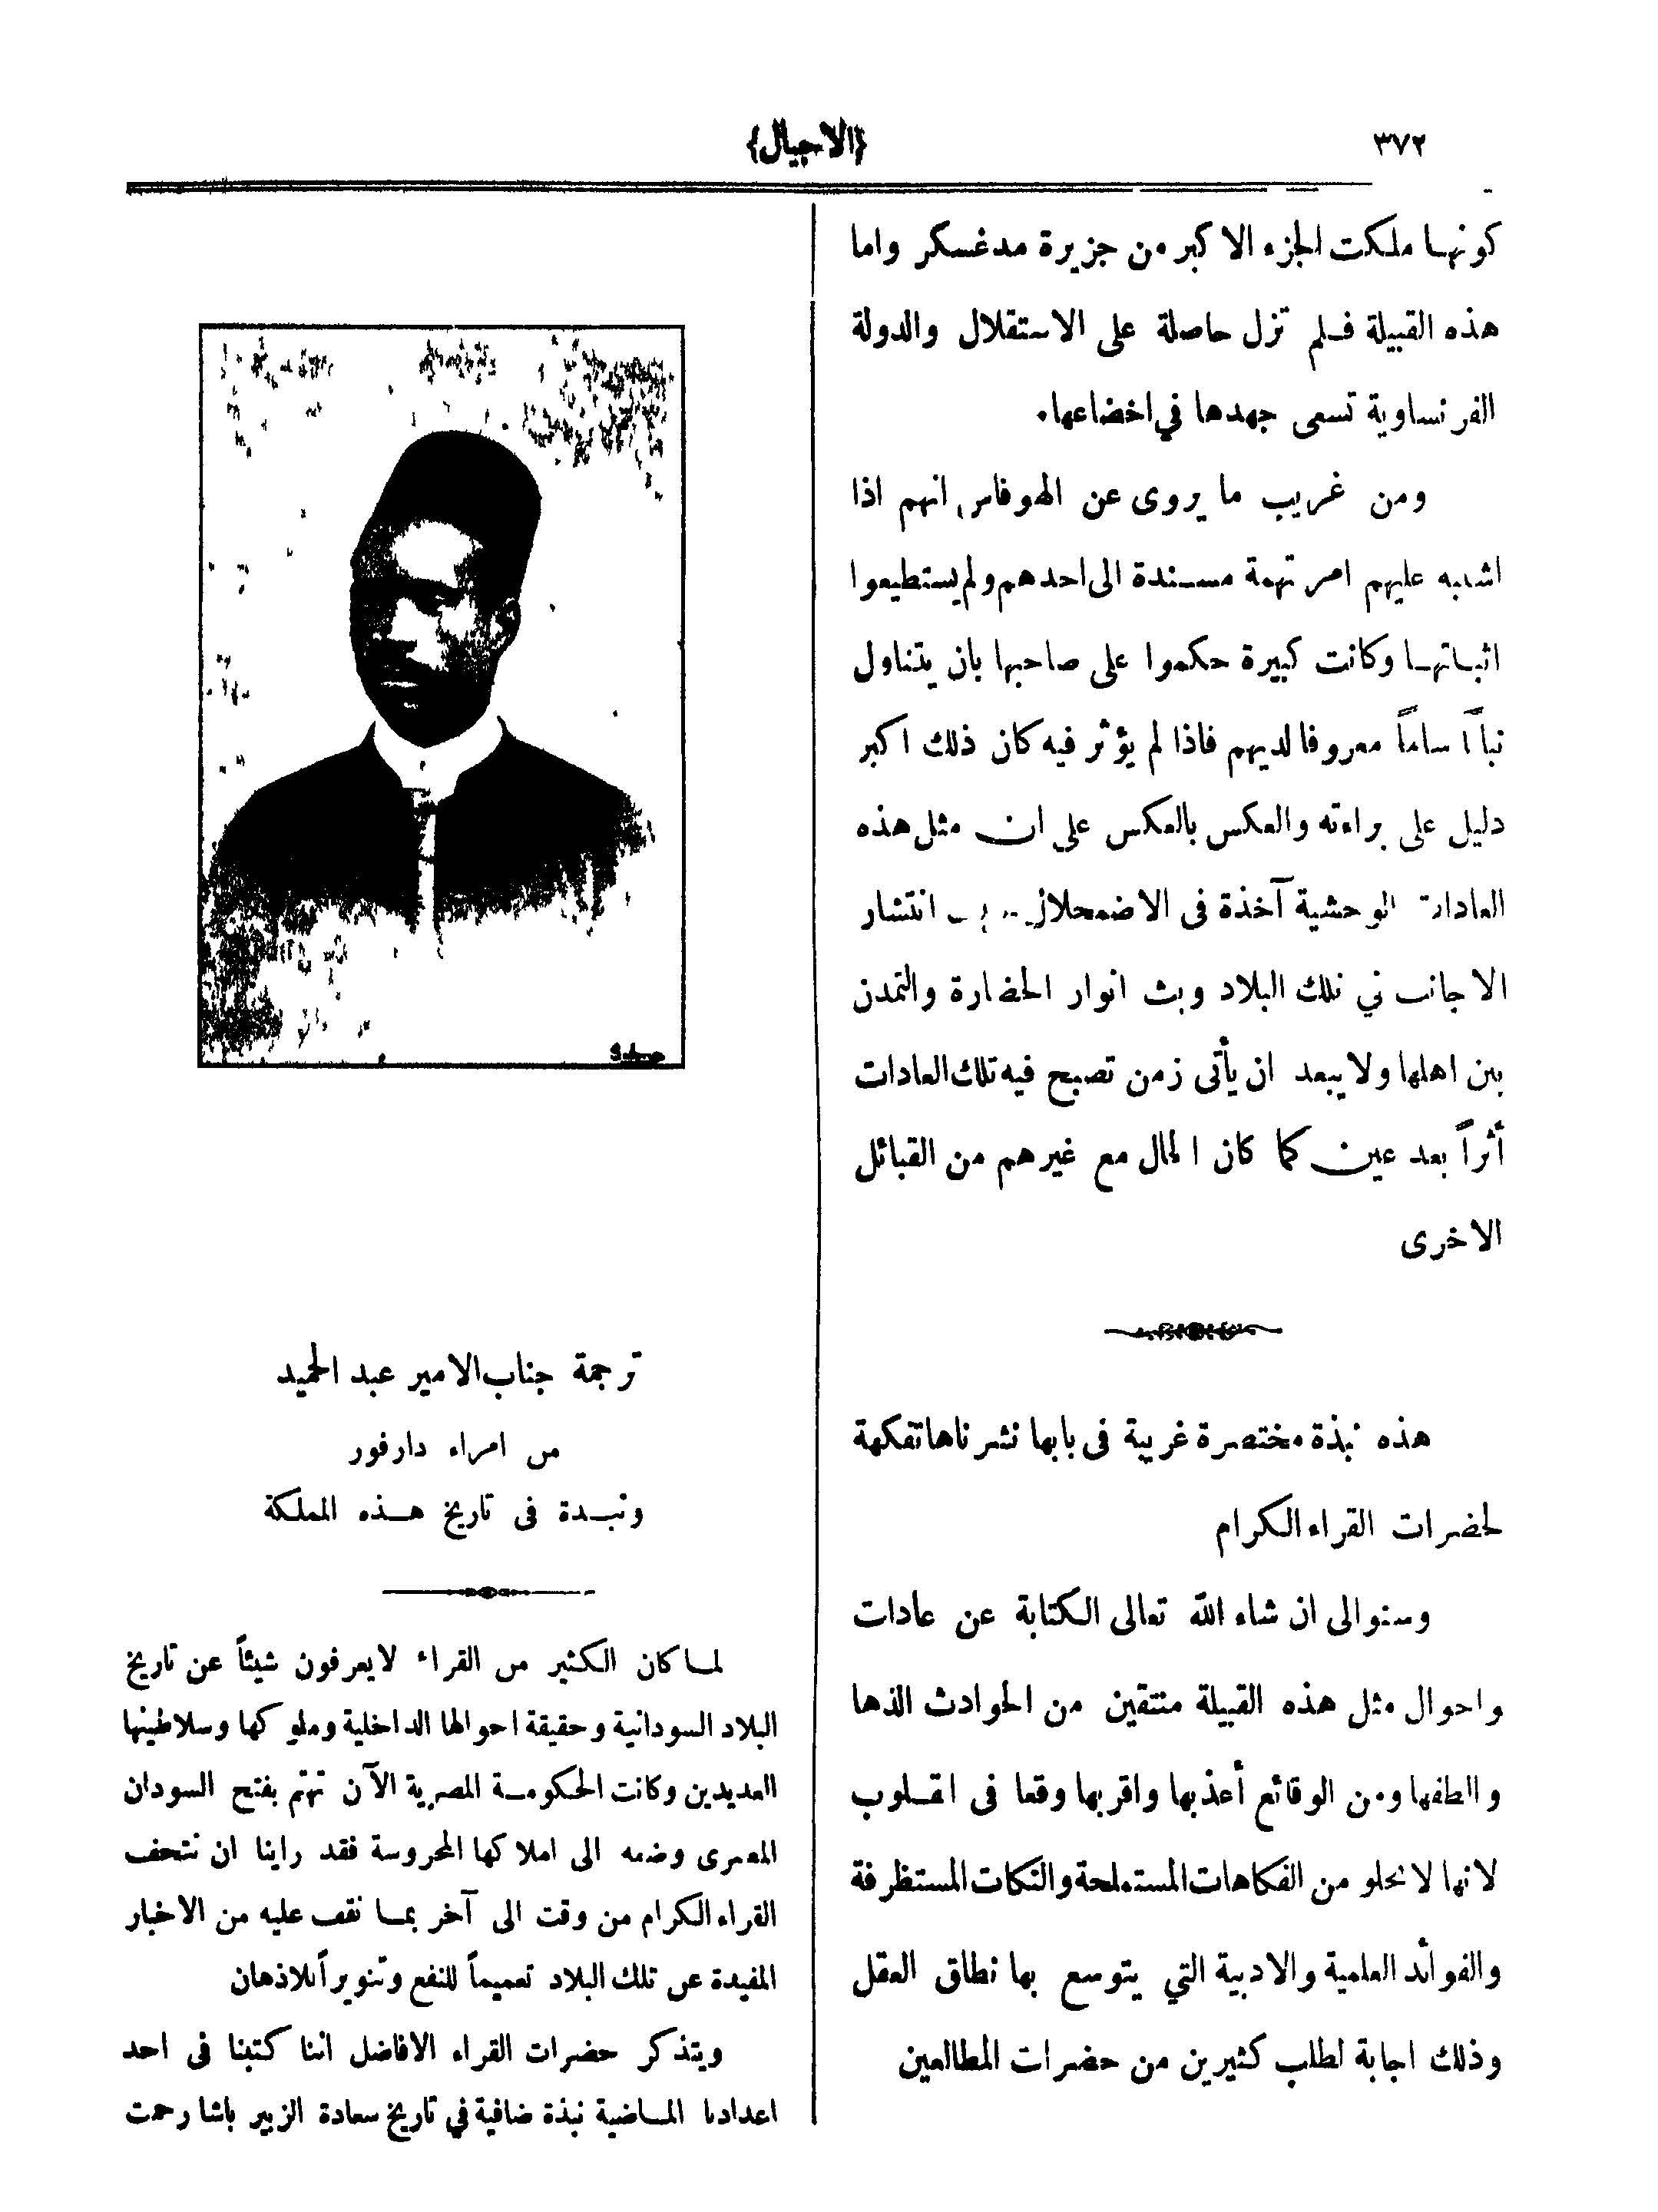 ٣٧٢
﴿الاجيال﴾
كونها ملكت الجزء الاكبر من جزيرة مدغسكر واما
هذه القبيلة فلم تزل حاصلة على الاستقلال والدولة
الفرنساوية تسعى جهدها في اخضاعها.
ومن غريب ما يروى عن الهوفاس انهم اذا
اشتبه عليهم امر تهمة مسندة الى احدهم ولم يستطيعوا
اثباتها وكانت كبيرة حكموا على صاحبها بان يتناول
ساماً معروفا لديهم فاذا لم يؤثر فيه كان ذلك اكبر
دليل على براءته والعكس بالعكس على ان مثل هذه
العادات الوحشية آخذة فى الاضمحلال انتشار
الاجانب في تلك البلاد وبث انوار الحضارة والتمدن
بين اهلها ولا يبعد ان يأتى زمن تصبح فيه تلك العادات
أثراً بعد عين كما كان الحال مع غيرهم من القبائل
الاخرى
هذه نبذة مختصرة غريبة فى بابها نشرناها تفكهة
لحضرات القراء الكرام
وسنوالى ان شاء الله تعالى الكتابة عن عادات
واحوال مثل هذه القبيلة منتقين من الحوادث الذها
والطفها ومن الوقائع أعذبها واقربها وقعا فى القلوب
لانها لا تخلو من الفكاهات المستملحة والنكات المستظرفة
والفوائد العلمية والادبية التي يتوسع بها نطاق العقل
وذلك اجابة لطلب كثيرين من حضرات المطالعين
ترجمة جناب الامير عبد الحميد
من امراء دارفور
ونبذة فى تاريخ هذه المملكة
لما كان الكثير من القراء لا يعرفون شيئاً عن تاريخ
البلاد السودانية وحقيقة احوالها الداخلية وملوكها وسلاطينها
العديدين وكانت الحكومة المصرية الآن تهتم بفتح السودان
المصرى وضمه الى املاكها المحروسة فقد راينا ان نتحف
القراء الكرام من وقت الى آخر بما نقف عليه من الاخبار
المفيدة عن تلك البلاد تعميماً للنفع وتنويراً للاذهان
ويتذكر حضرات القراء الافاضل اننا كتبنا فى احد
اعدادنا الماضية نبذة ضافية في تاريخ سعادة الزبير باشا رحمت